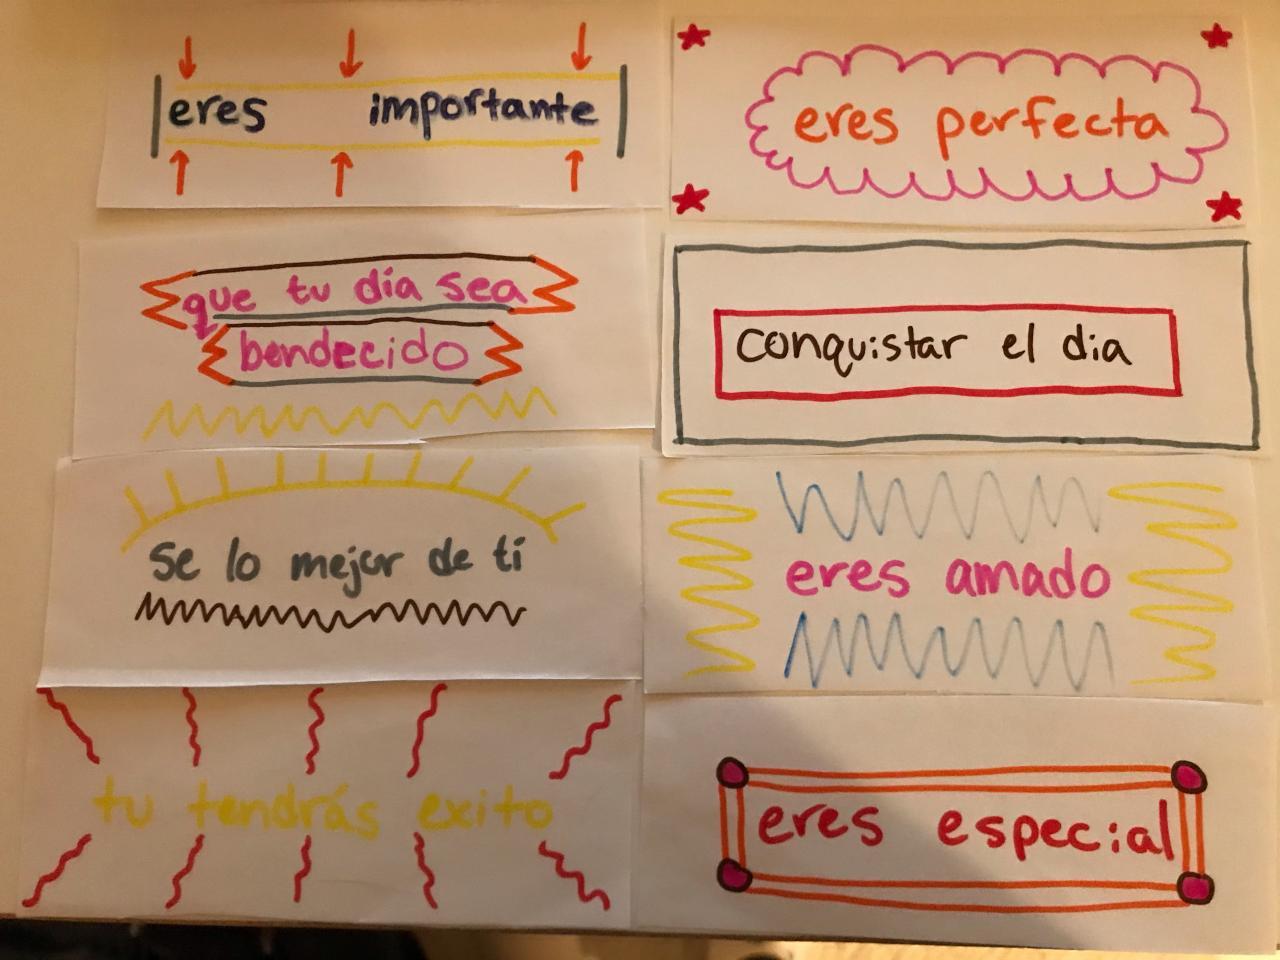 eres importante
eres perfecta
que tu día sea
bendecido
conquistar el dia
se lo mejor de ti
eres amado
tu tendrás exito
eres especial